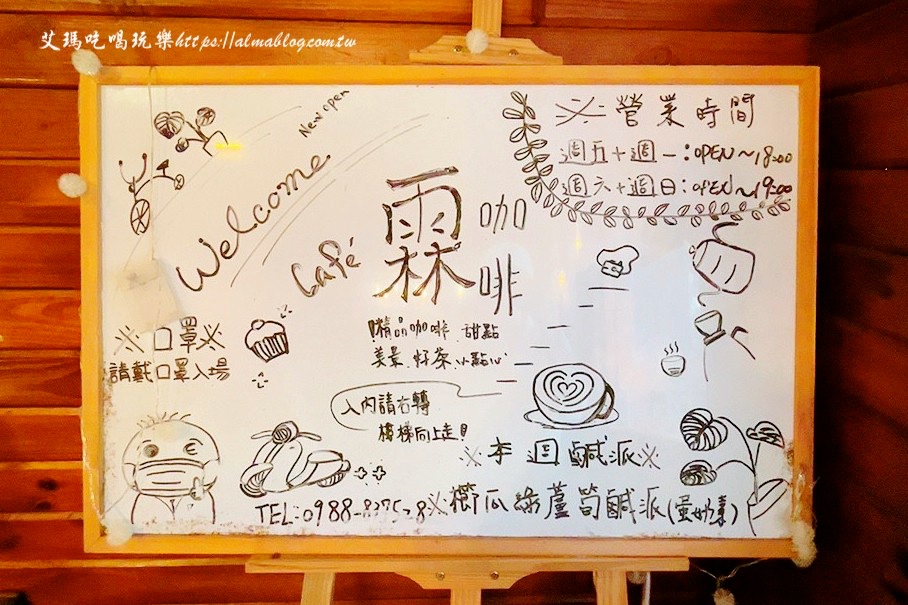 艾瑪吃喝玩樂https://almablog.com.tw
New open
Welcome
Café
霖
咖啡
※營業時間
週五+週一:OPEN~18:00
週六+週日:OPEN~19:00
※口罩※
請戴口罩入場
精品咖啡 甜點
美景 好茶 小點心
入內請右轉
樓梯向上走!
※本週鹹派※
※櫛瓜綠蘆筍鹹派(蛋奶素)
TEL:0988-